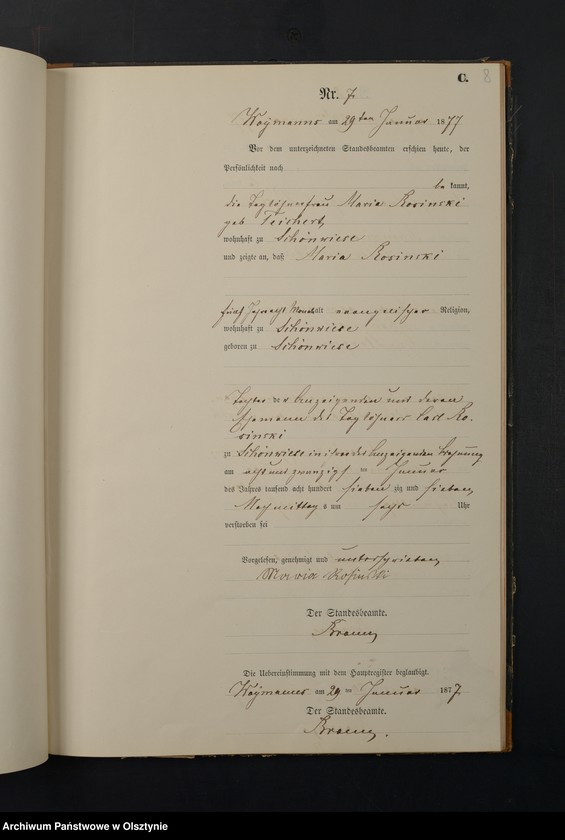 C.
8
Nr. 7.
Kaÿmanns am 29ten Januar 1877
Vor dem unterzeichneten Standesbeamten erschien heute, der
Persönlichkeit nach
be kannt,
die Taglöhnerfrau Maria Rosinski
geb Teichert,
wohnhaft zu Schönwiese
und zeigte an, daß Maria Rosinski
fünf Jahr acht Monat alt evangelischer Religion,
wohnhaft zu Schönwiese
geboren zu Schönwiese
Tochter der Anzeigenden und deren
Ehemann des Taglöhners Carl Ro-
sinski
zu Schönwiese in der Anzeigenden Wohnung
am acht und zwanzigsten Januar
des Jahres tausend acht hundert sieben zig und sieben
Nachmittag s um sechs Uhr
verstorben sei
Vorgelesen, genehmigt und unterschrieben
Maria Rosinski
Der Standesbeamte.
Die Uebereinstimmung mit dem Hauptregister beglaubigt.
Kaÿmanns am 29 ten Januar 1877.
Der Standesbeamte.
Archiwum Państwowe w Olsztynie